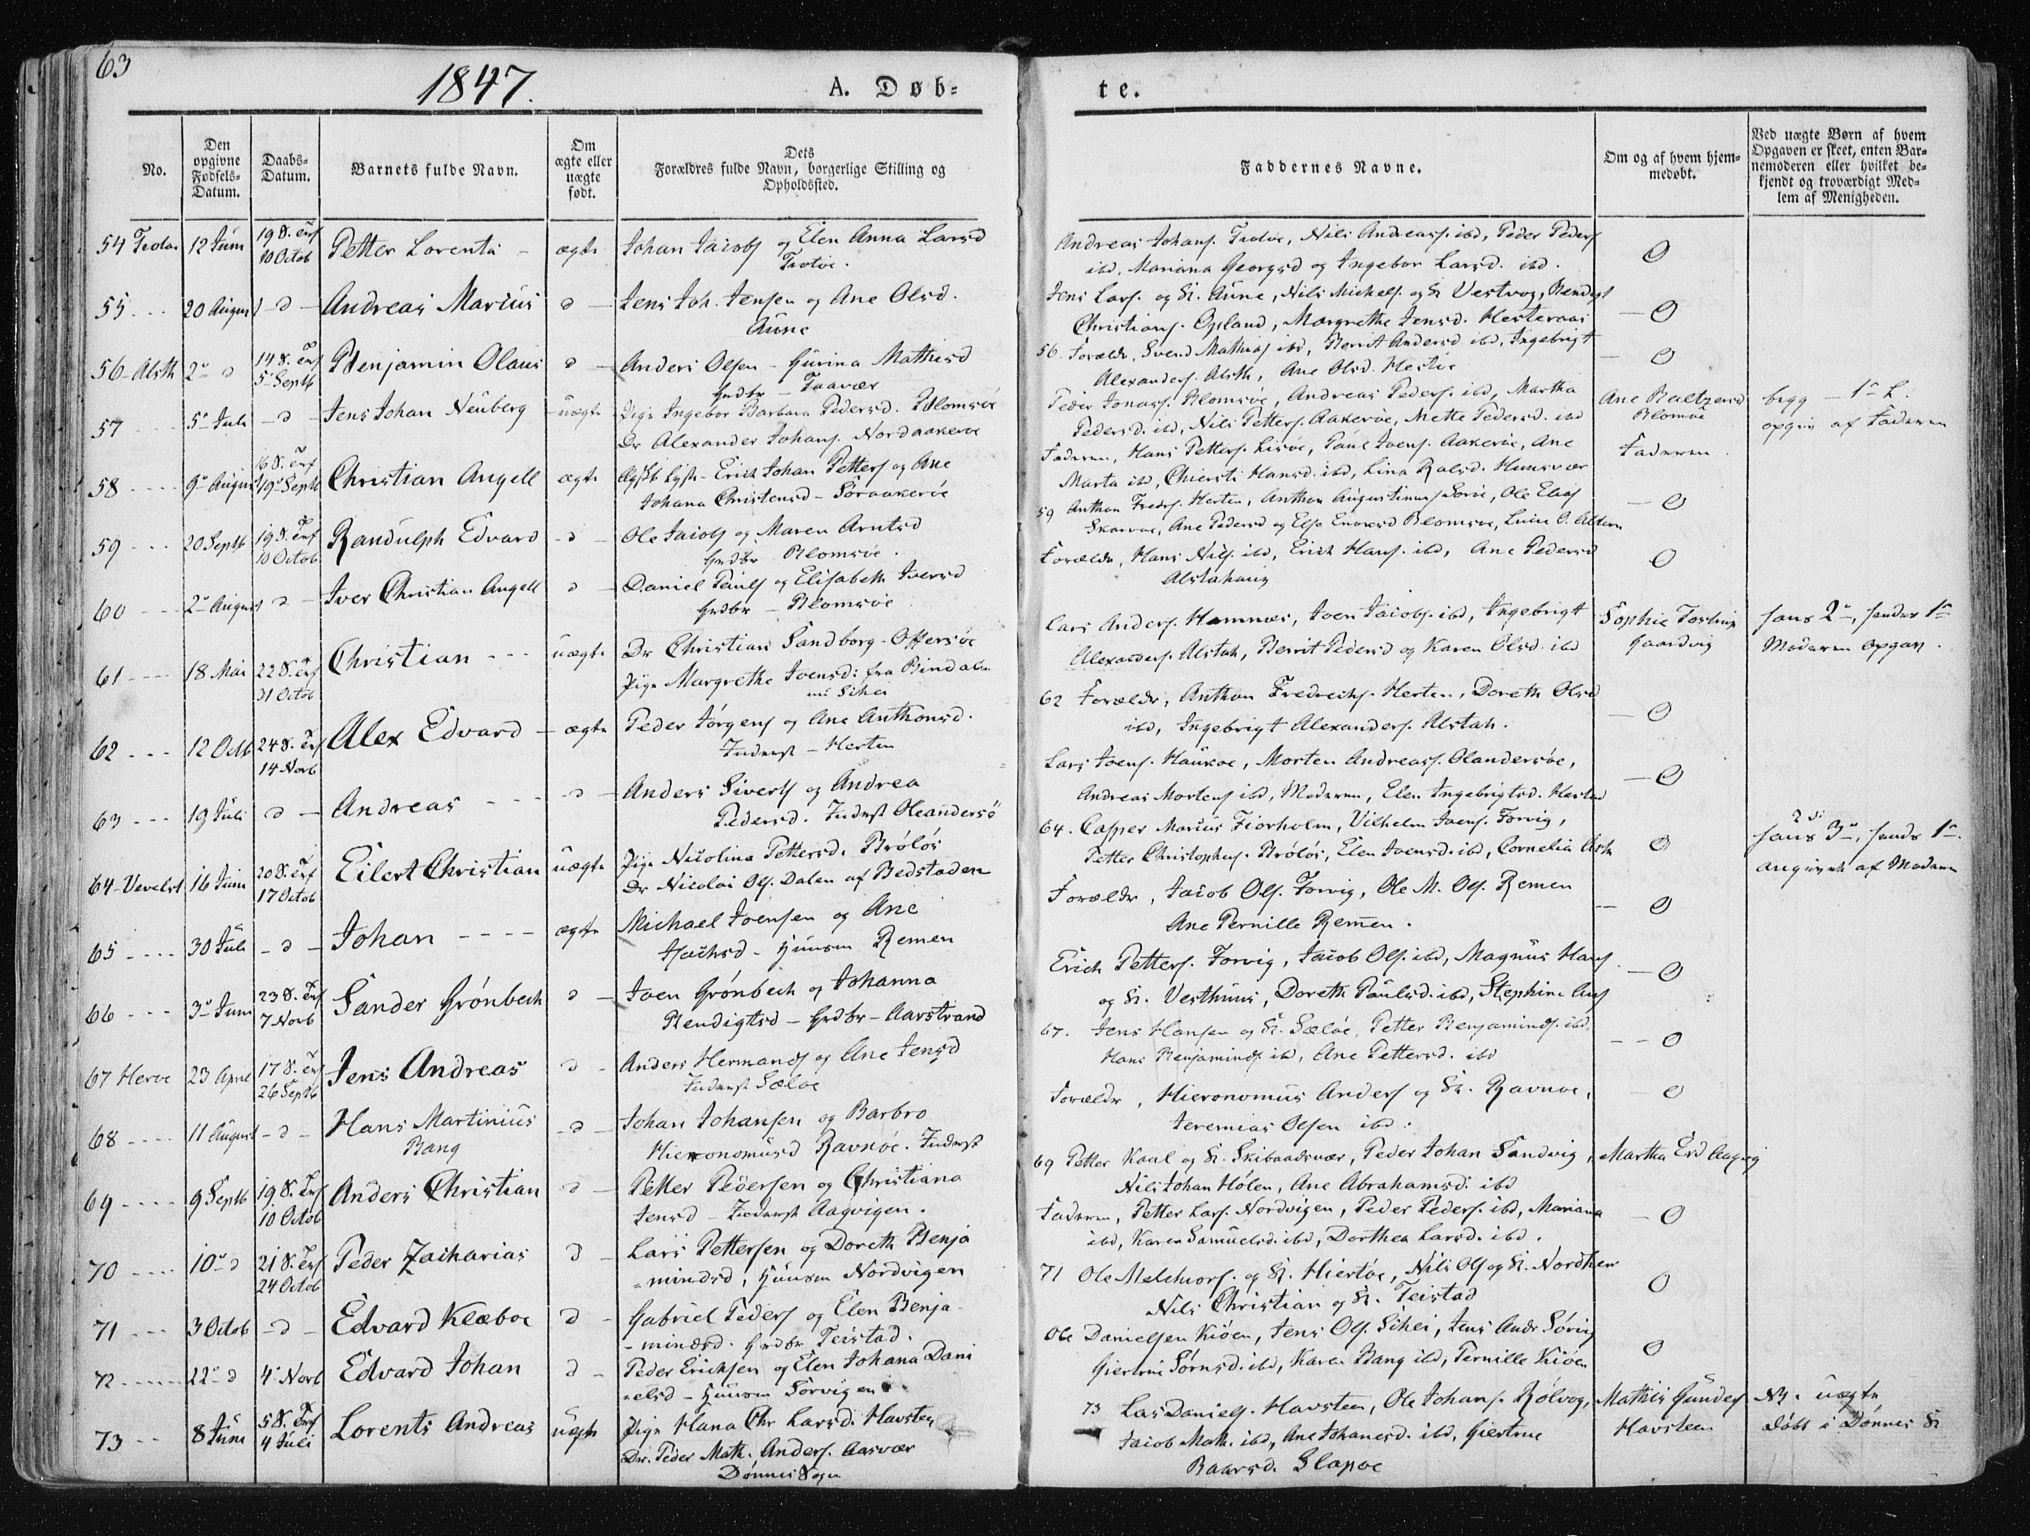 63
1847.
A. Døb-
te.
No.
Den opgivne Fødsels-Datum.
Daabs-Datum.
Barnets fulde Navn.
Om ægte eller uægte født.
Dets Forældres fulde Navn, borgerlige Stilling og Opholdssted.
Faddernes Navne.
Om og af hvem hjem-medøbt.
Ved uægte Børn af hvem Opgaven er skeet, enten Bar-nemoderen eller hvilket be-kjendt og troværdigt Med-lem af Menigheden.
54 12 Juni 19 S. Trf 10 Octob Petter Lorents - ægte Johan Jacobs og Elen Anna Larsd
Andreas Johans. Nils Andreass. ibd, Peder Peders
ibd, Mariana Georgsd og Ingebor Larsd. ibd. 0
55 20 August d Andreas Marius d Jens Joh. Jensen og Ane Olsd.
Aune
Jens Lars. og K. Aune, Nils Michels. og K Vestvog, Bendigt
Christians. Opland, Margrethe Jensd. 0
56 Alsth 2 d 14 S. Trf 5 Septb Benjamin Olaus d Anders Olsen - Gurina Mathisd
Grdbr - Taavær
56 Forældr, Svend Mathias ibd, Berrit Andersd ibd, Ingebrigt
Alexanders. Alsth, Ane Olsd. 0
57 5 Juli d Jens Johan Neuberg uægte Pige Ingebor Barbara Pedersd. Blomsøe
Dr Alexander Johans. Nordaakerøe
Peder Jonas. Blomsøe, Andreas Peders. ibd, Martha
Pedersd. ibd, Nils Petters. Aakerøe, Mette Pedersd. ibd
Ane Baltzersd Blomsøe
begg - 1 L.
opgiv af Faderen
58 9 August 16 S. Trf 19 Septb Christian Angell ægte Erich Johan Petters og Ane
Johana Christensd - Søraakerøe
Faderen, Hans Petters. Paul Joens. Aakerøe, Ane
Marta ibd, Chiersti Hansd. ibd, Lina Hunsvær
Faderen
59 20 Septb 19 S. Trf 10 Octob Randulph Edvard d Ole Jacobs og Maren Arntsd
Grdbr - Blomsøe.
59 Anthon Herten, Anthon Augustinus
Ane Pedersd og Else Blomsøe, 0
60 2 August d Iver Christian Angell d Daniel Pauls og Elisabeth Iversd
Grdbr - Blomsøe
Forældr, Hans Nils. ibd, Erich Hans. ibd, Ane Pedersd
Alstahaug 0
61 18 Mai 22 S. Trf 31 Octob Christian uægte Dr Christian Sandborg - Offersøe
Pige Margrethe Joensd: fra Bindalen
Lars Anders. Hamnæs, Joen Jacobs. ibd, Ingebrigt
Alexanders. Alstah, Berrit Pedersd og Karen Olsd. ibd
Sophie
hans 2, hendes 1
Moderen opgav.
62 12 Octb 24 S. Trf 14 Novb Alex Edvard ægte Peder Jørgens og Ane Anthonsd.
Inderst - Herten
62 Forældr, Anthon Fredrichs. Herten, Doreth Olsd
ibd, Ingebrigt Alexanders. Alstah. 0
63 19 Juli d Andreas d Anders Siverts og Andrea
Pedersd. Inderst Oleandersø
Lars Joens. Morten Andreass. Olandersøe,
Andreas Mortens ibd, Moderen, Elen Ingebrigtsd. 0
64 Vevelst 16 Juni 20 S. Trf 17 Octob Eilert Christian uægte Pige Nicolina Pettersd. Brøløs
Dr Nicolai Ols. Dalen af Bedstaden
64. Casper Marius Fiorholm, Vilhelm Joens. Forvig,
Petter Christophers. Brøløs, Elen Joensd. ibd, Cornelia 0
hans 3, hendes 1.
angivet af Moderen
65 30 Juli d Johan ægte Michael Joensen og Ane
Isachsd - Huusm Remen
Forældr, Jacob Ols. Forvig, Ole M. Ols. Remen
Ane Pernille Remen. 0
66 3 Juni 23 S. Trf 7 Novb Sander Grønbech d Joen Grønbech og Johanna
Bendigtsd - Grdbr - Aarstrand
Erich Petters. Forvig, Jacob Ols. ibd, Magnus Hans
og K. Vesthuus, Doreth Paulsd. ibd, Stephine 0
67 Herøe 23 April 17 S. Trf 26 Septb Jens Andreas d Anders Hermands og Ane Jensd
Inderst Sæløe
67. Jens Hansen og K. Sæløe, Petter Benjamins. ibd.
Hans Benjamins. ibd, Ane Pettersd. ibd 0
68 11 August d Hans Martinius
Bang d Johan Johansen og Barbro
Hieronomusd Ravnøe. Inderst
Forældr, Hieronomus Anders og K. Ravnøe,
Jeremias Olsen ibd. 0
69 9 Septb 19 S. Trf 10 Octob Anders Christian d Petter Pedersen og Christiana
Jensd - Inderst Aagvigen.
69 Petter Kaal og K. Skibaadsvær, Peder Johan Sandvig,
Nils Johan Holen, Ane Abrahamsd. ibd
Martha
70 10 d 21 S. Trf 24 Octob Peder Zacharias d Lars Pettersen og Doreth Benja
mindsd, Huusm Nordvigen
Faderen, Petter Lars. Nordvigen, Peder Peders. ibd, Mariana
ibd, Karen Samuelsd. ibd, Dorthea Larsd. ibd. 0
71 3 Octob d Edvard Klæboe d Gabriel Peders og Elen Benja-
mindsd. Grdbr Teistad.
71 Ole Melchiors. og K. Hiertøe, Nils Ols og K. Nordhem
Nils Christian og K. Teistad 0
72 22 d 4 Novb Edvard Johan d Peder Erichsen og Elen Johana Dani
elsd - Huusm Sørvigen
Ole Danielsen Kiøen, Jens Ols. Jens Andr Sørvig
Giertrui ibd, Karen Bang ibd, Pernille Kiøen 0
73 8 Juni 5 S. Trf 4 Juli Lorents Andreas uægte Pige Hana Chr Larsd. Havsteen
Dr. Peder Math. Anders. Aasvær
Dønnes Sogn
73 Lars Daniels. Havsteen, Ole Johans. Rølvog,
Jacob Math. ibd, Ane Johanesd. ibd, Giertrue
Baarsd. Slapøe
Mathis Gunders
Havsteen
NB. uægte
døbt i Dønnes K